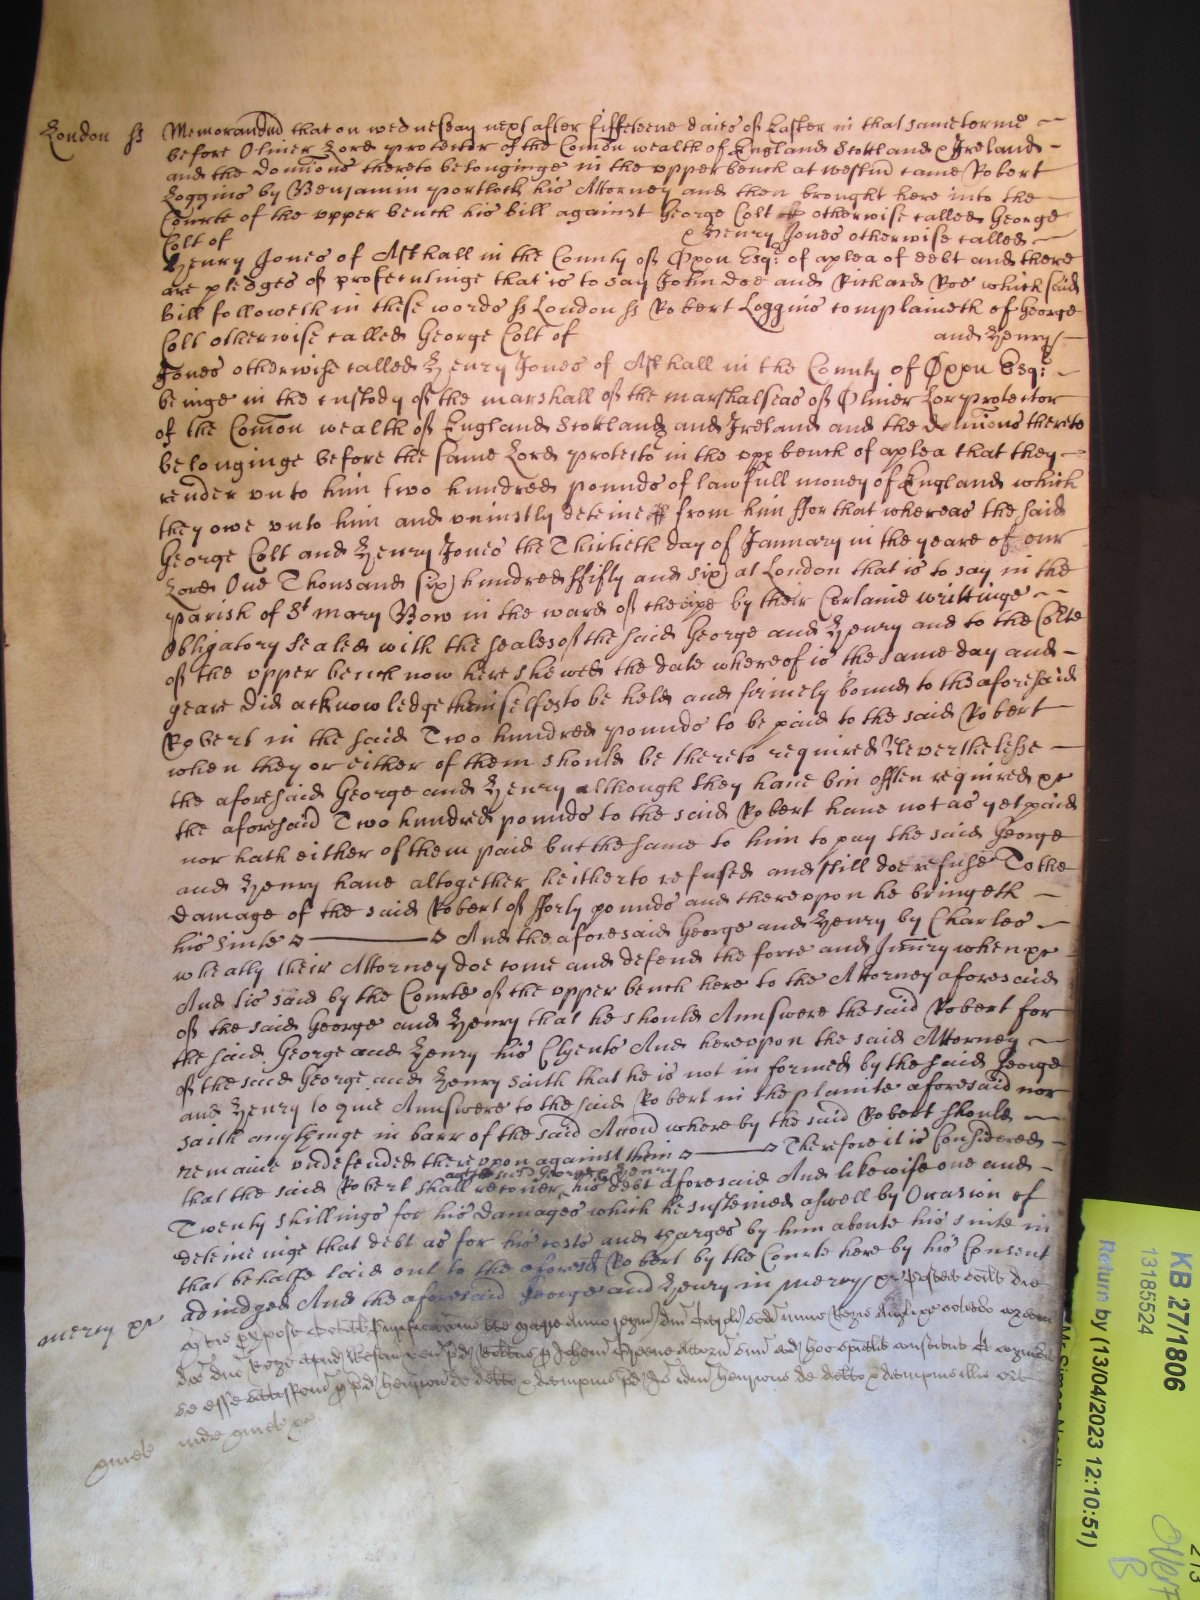 London ss Memorandud that on wednesday next after fifteene daies of Easter in that same terme
before Oliver Lord protector of the Comon wealth of England Scotland & Ireland
and the domions thereto belonginge in the upper bench at westm came Robert
Loggins by Benjamin portlock his Attorney and then brought here into the
Courte of the upper bench his bill against George Colt otherwise called George
Colt of & Henry Jones otherwise called
Henry Jones of Asthall in the County of Oxon Esq: of a plea of debt and there
are pledges of prosecutinge that is to say John Doe and Richard Roe which said
bill followeth in these words ss London ss Robert Loggins complaineth of George
Colt otherwise called George Colt of and Henry
Jones otherwise called Henry Jones of Asthall in the County of Oxon Esq:
beinge in the custody of the marshall of the marshalseas of Oliver Lor protector
of the Comon wealth of England Scotland and Ireland and the domions thereto
belonginge before the same Lord protector in the upp bench of a plea that they
render unto him two hundred pounds of lawfull money of England which
they owe unto him and uniustly deteine from him ffor that whereas the said
George Colt and Henry Jones the Thirtieth day of January in the yeare of our
Lord One Thousand six hundred ffifty and six at London that is to say in the
parish of St mary Bow in the ward of cheape by their Certaine writtinge
obligatory sealed with the seales of the said George and Henry and to the Corte
of the upper bench now here shewed the date whereof is the same day and
yeare did acknowledge themselfes to be held and firmely bound to the aforesaid
Robert in the said Two hundred pounds to be paid to the said Robert
when they or either of them should be thereto required Neverthelesse
the aforesaid George and Henry although they have bin often required &c
the aforesaid Two hundred pounds to the said Robert have not as yet paid
nor hath either of them paid but the same to him to pay the said George
and Henry have altogether heitherto refused and still doe refuse To the
damage of the said Robert of fforty pounds and thereupon he bringeth
his suite And the aforesaid George and Henry by Charles
wheatly their Attorney doe come and defend the force and Iniury when &c
And tis said by the Courte of the upper bench here to the Attorney aforesaid
of the said George and Henry that he should Annswere the said Robert for
the said George and Henry his Clyents And hereupon the said Attorney
of the said George and Henry saith that he is not informed by the said George
and Henry to give Annswere to the said Robert in the plainte aforesaid nor
saith anythinge in barr of the said Accon whereby the said Robert should
remaine undefended thereupon against them Therefore it is Considered
that the said Robert shall recover against the said George & Henry his debt aforesaid And likewise one and
Twenty shillings for his damages which he susteined aswell by Occasion of
deteineinge that debt as for his costs and charges by him aboute his suite in
that behalfe laid out to the aforesd Robert by the Courte here by his Consent
adiudged And the aforesaid George and Henry in mercy &c
mercy &c
KB 27/1806
13185524
Return by (13/04/2023 12:10:51)